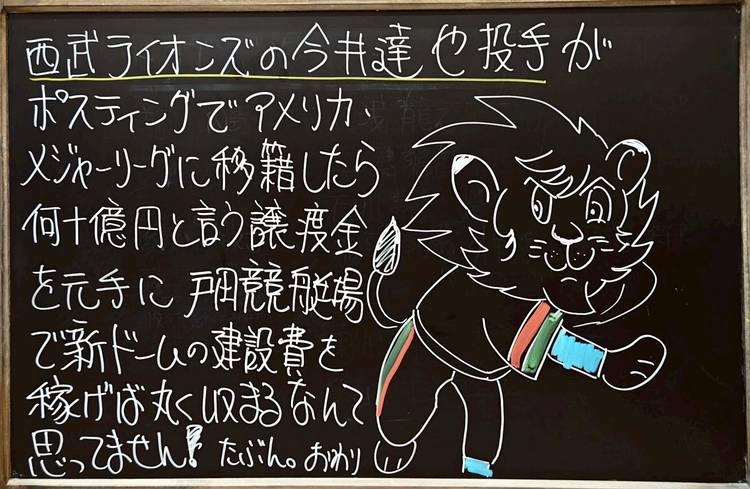 西武ライオンズの今井達也投手が
ポスティングでアメリカ、
メジャーリーグに移籍したら
何十億円と言う譲渡金
を元手に戸田競艇場
で新ドームの建設費を
稼げば丸く収まるなんて
思ってません! たぶん。おわり